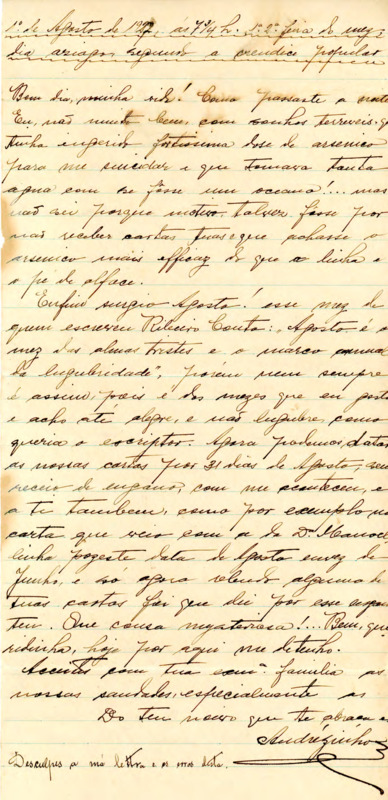 1º de Agosto de 192, ás 7 3/4 h. 1ª 2ª feira do mez,
dia aziago segundo a crendice popular
Bom dia, minha vida! Como passaste a noite
Eu, não muito bem, com sonhos terriveis: q
tinha ingerido fortissima dose de arsenico
para me suicidar e que tomava tanta
agua com se fosse um oceano!... mas
não sei porque motivo. Talvez fosse por
não receber cartas tuas e que achasse o
arsenico mais efficaz do que a linha e
o pé de alface.
Enfim surgio Agosto! esse mez de
quem escreveu Ribeiro Couto: "Agosto é o
mez das almas tristes e o marco
da lugubridade", porem nem sempre
é assim, pois é dos mezes que eu gosto
e acho até alegre, e não lugubre, como
queria o escriptor. Agora podemos datar
as nossas cartas por 31 dias de Agosto, sem
receio de engano, com me acontecen, e
a ti tambem, como por exemplo na
carta que veio com a da Dª Manoe
linha pozeste data de Agosto em vez de
Junho, e so agora relendo algumas de
tuas cartas foi que dei por esse engano
tem. Que cousa mysteriosa!... Bem, que
ridinha, hoje por aqui me detenho.
Acceites com tua exmª familia as
nossas saudades, especialmente as
Do teu noivo que te abraça
Andrézinho
Desculpes a má lettra e os erros desta.